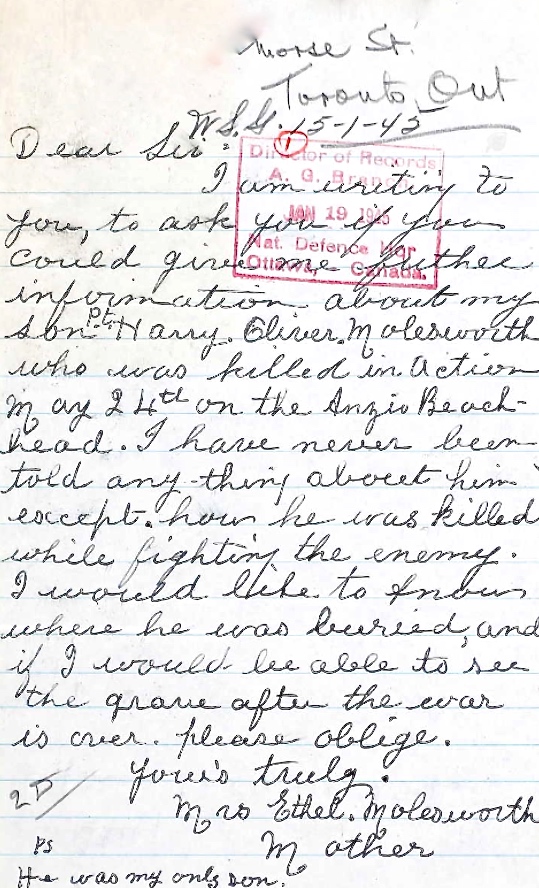 Morse St.
Toronto, Ont
W.S.G. 15-1-45
1
Dear Sir:
Director of Records
A. G. Branch
JAN 19 1945
Nat. Defence Hqr
Ottawa, Canada.
I am writing to
you, to ask you if you
could give me futher
information about my
son Pt. Harry. Oliver. Molesworth
who was killed in action
May 24th on the Anzio Beach-
head. I have never been
told any-thing about him
except. how he was killed
while fighting the enemy.
I would like to know
where he was buried, and
if I would be able to see
the grave after the war
is over. please oblige.
Your's truly.
2D/
Mrs Ethel. Molesworth
Mother
Ps
He was my only son.